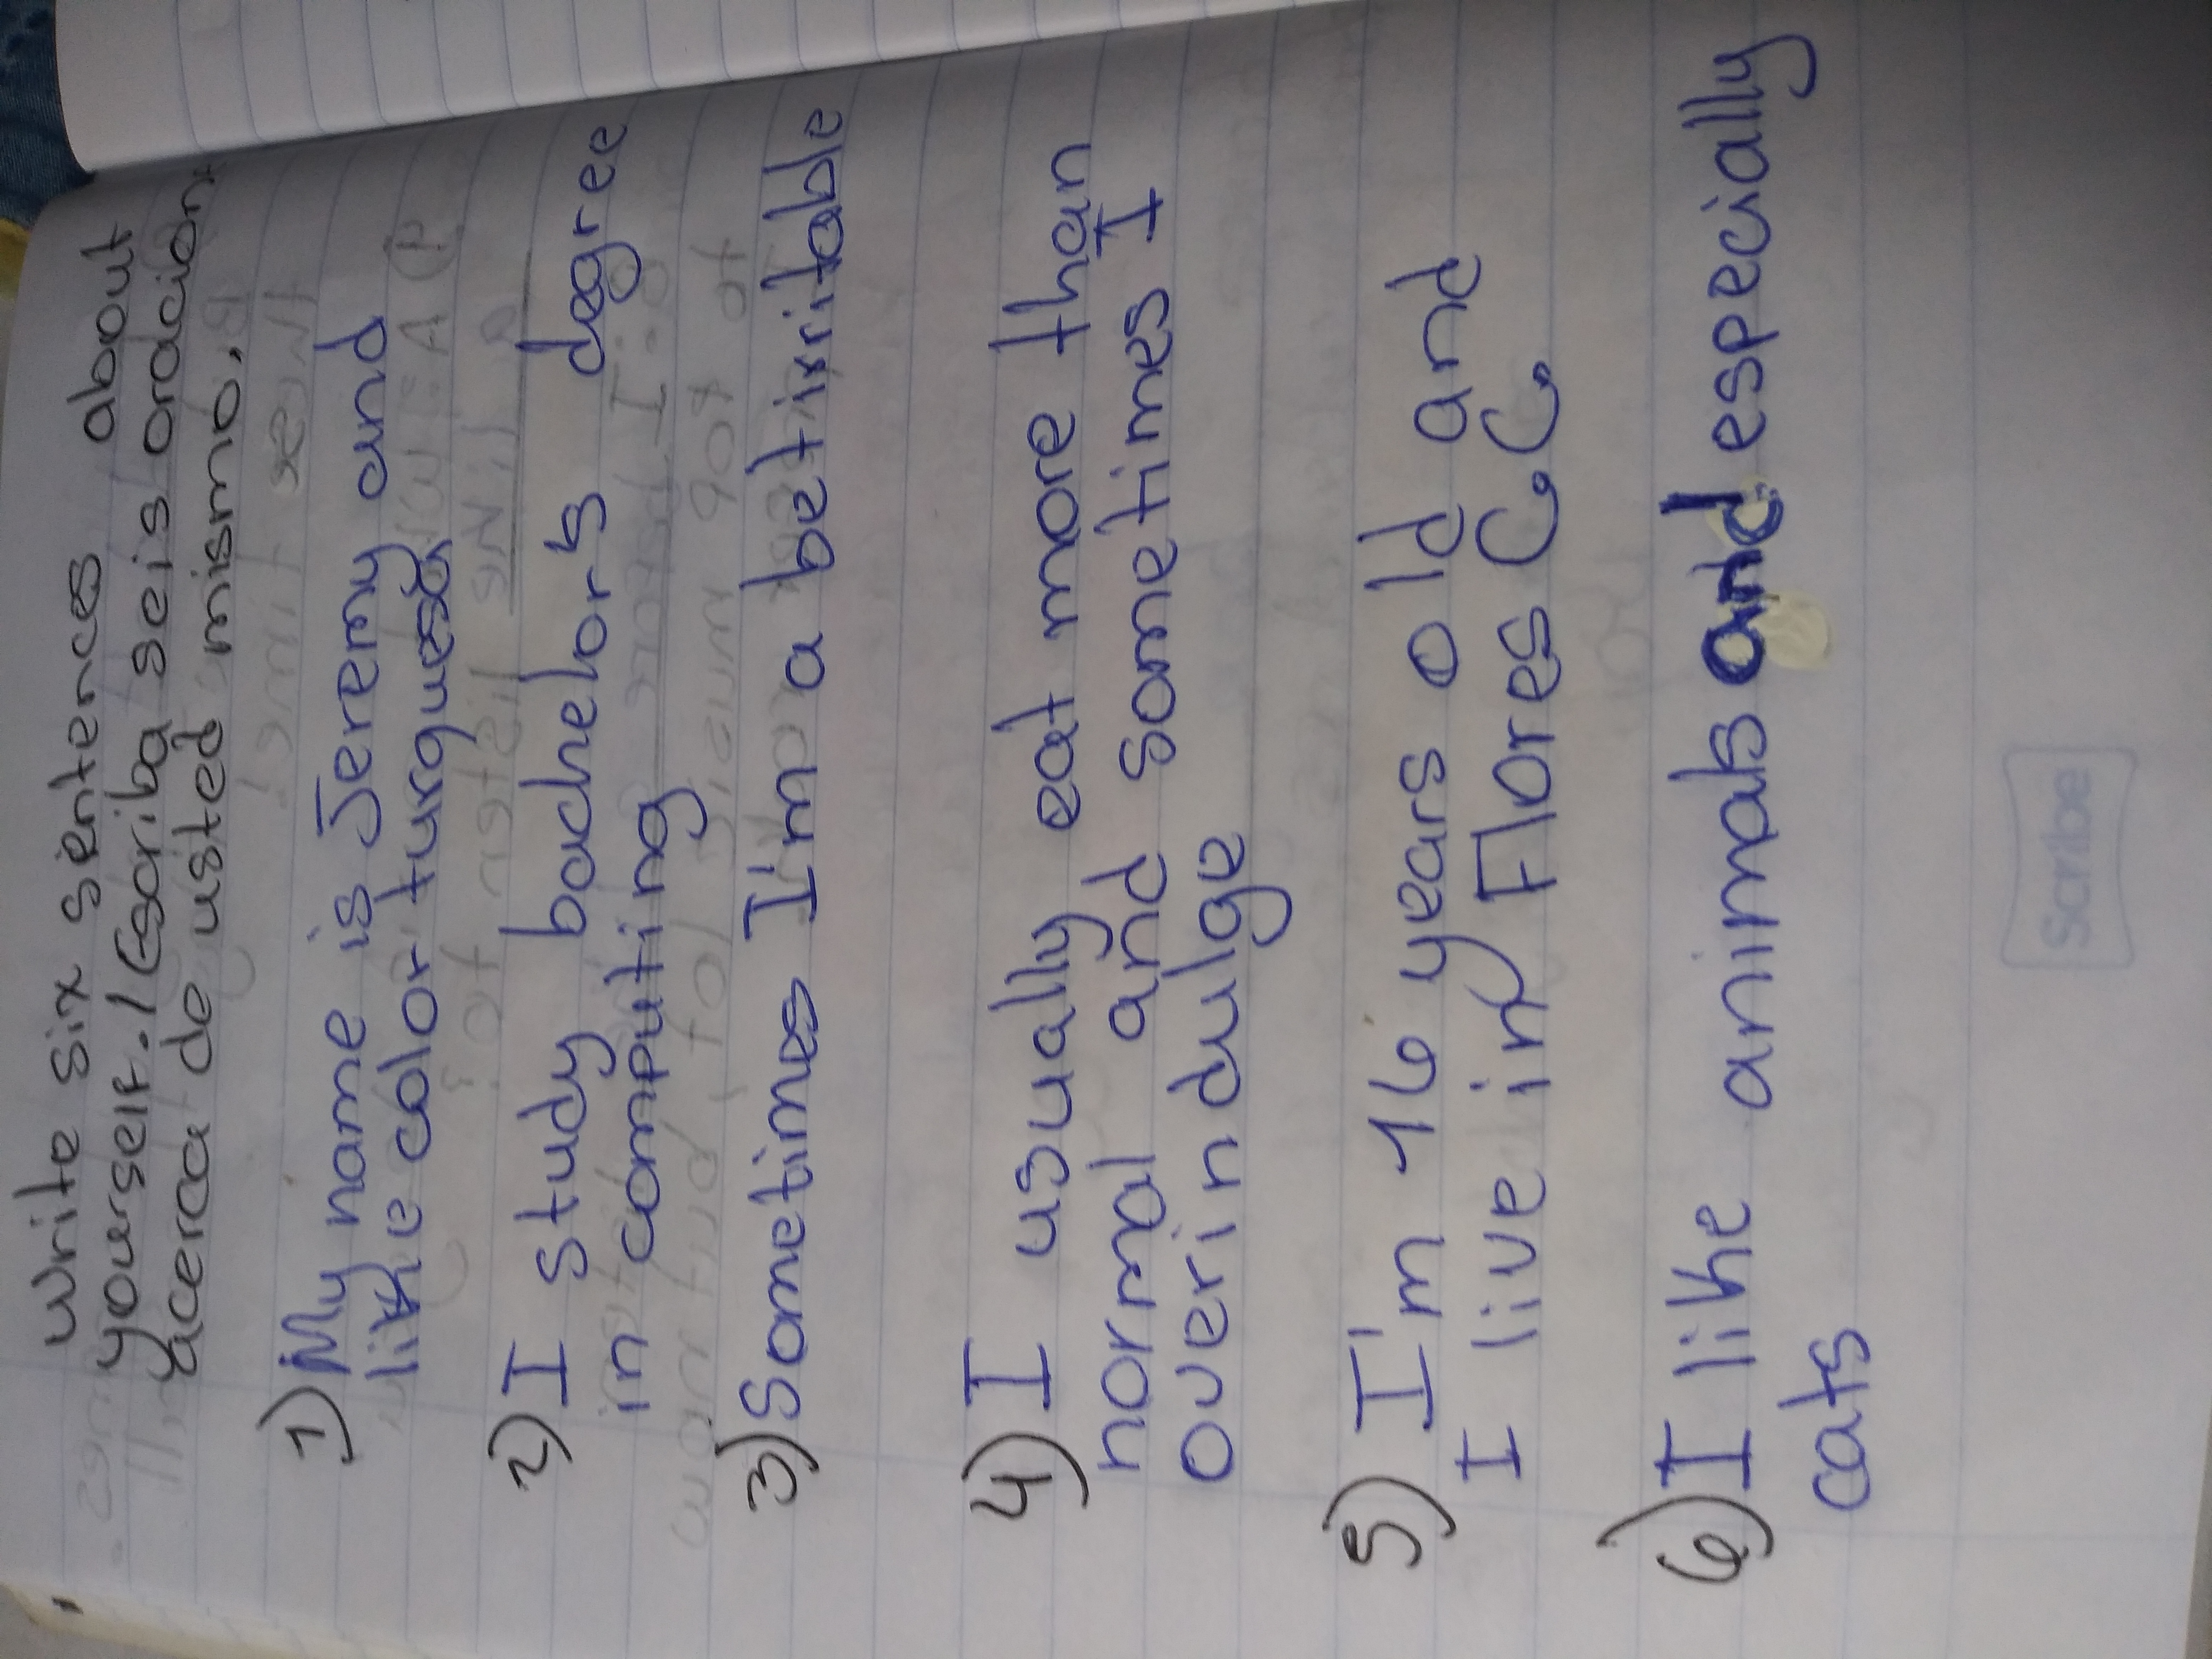 Write six sentences about
yourself. / Escriba seis oracion
acerca de usted mismo.
1) My name is Jeremy and
like color turquesa
2) I study bachelor's degree
in computing
3) Sometimes I'm a bet irritable
4) I usually eat more than
normal and sometimes I I
overindulge
5) I'm 16 years old and
I live in Flores C.C.
6) I like animals and especially
cats
Scribe